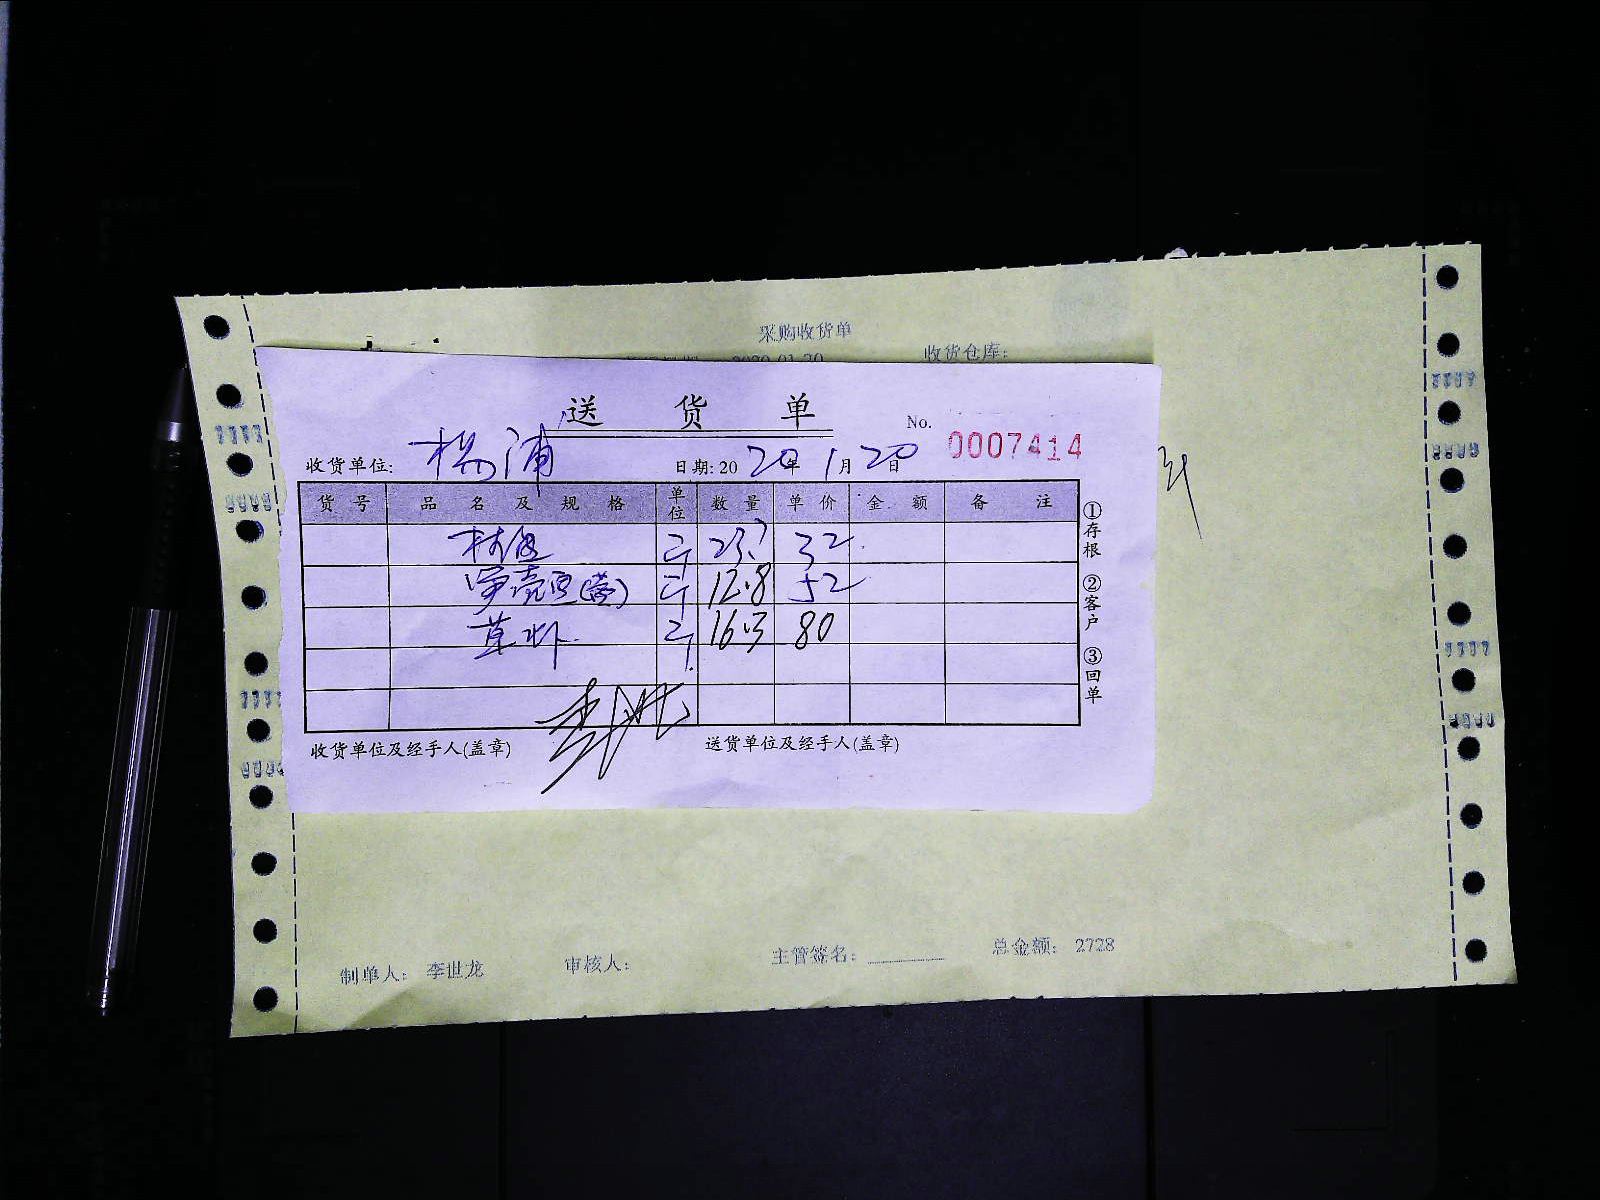 采购收货单
2020-01-20 收货仓库:
送 货 单
No. 0007414
收货单位: 杨浦 日期: 2020年1月20日
货号 品名及规格 单位 数量 单价 金额 备注
斤 23.7 32
斤 12.8 52
草虾 斤 16.3 80
①存根 ②客户 ③回单
收货单位及经手人(盖章) 送货单位及经手人(盖章)
制单人: 李世龙 审核人: 主管签名: 总金额: 2728